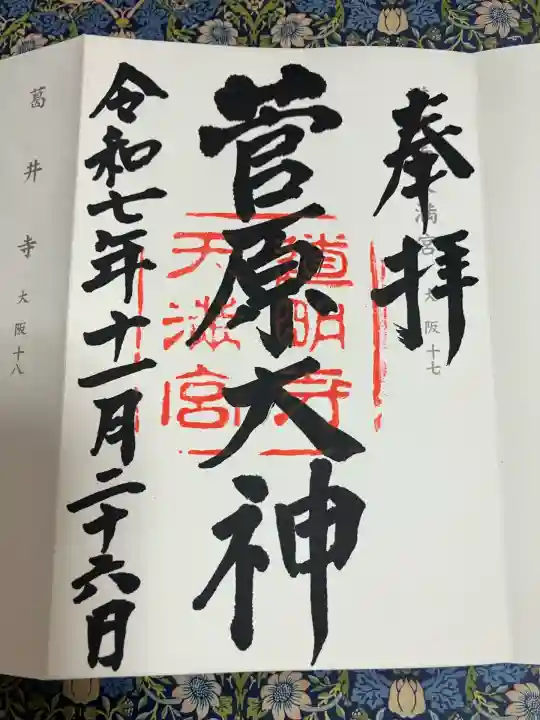 奉拝
満宮 大阪十七
菅原大神
道明寺
天満宮
令和七年十一月二十六日
葛井寺 大阪十八